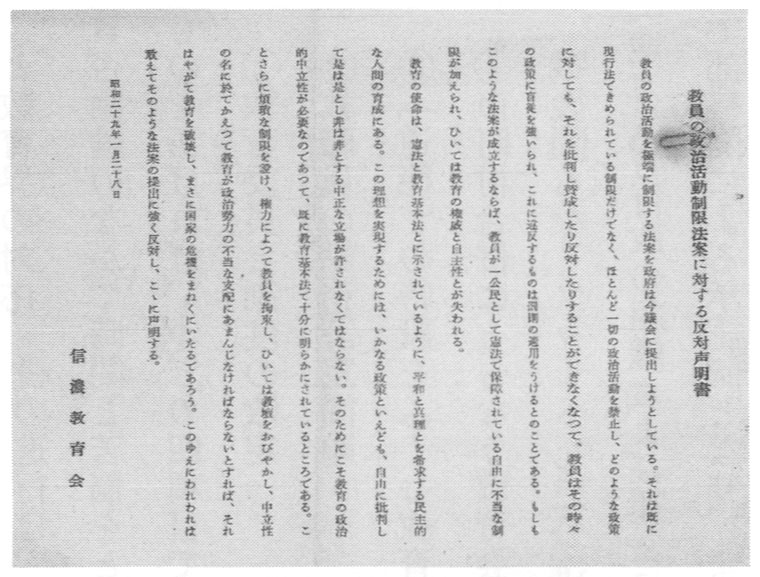 教員の政治活動制限法案に対する反対声明書
教員の政治活動を極端に制限する法案を政府は今議会に提出しようとしている。それは既に
現行法できめられている制限だけでなく、ほとんど一切の政治活動を禁止し、どのような政策
に対しても、それを批判し賛成したり反対したりすることができなくなつて、教員はその時々
の政策に盲従を強いられ、これに違反するものは罰則の適用をうけるとのことである。もしも
このような法案が成立するならば、教員が一公民として憲法で保障されている自由に不当な制
限が加えられ、ひいては教育の権威と自主性とが失われる。
教育の使命は、憲法と教育基本法とに示されているように、平和と真理とを希求する民主的
な人間の育成にある。この理想を実現するためには、いかなる政策といえども、自由に批判し
て是は是とし非は非とする中正な立場が許されなくてはならない。そのためにこそ教育の政治
的中立性が必要なのであつて、既に教育基本法で十分に明らかにされているところである。こ
とさらに煩瑣な制限を設け、権力によつて教員を拘束し、ひいては教壇をおびやかし、中立性
の名に於てかえつて教育が政治勢力の不当な支配にあまんじなければならないとすれば、それ
はやがて教育を破壊し、まさに国家の危機をまねくにいたるであろう。このゆえにわれわれは
敢えてそのような法案の提出に強く反対し、こゝに声明する。
昭和二十九年一月二十八日
信濃教育会